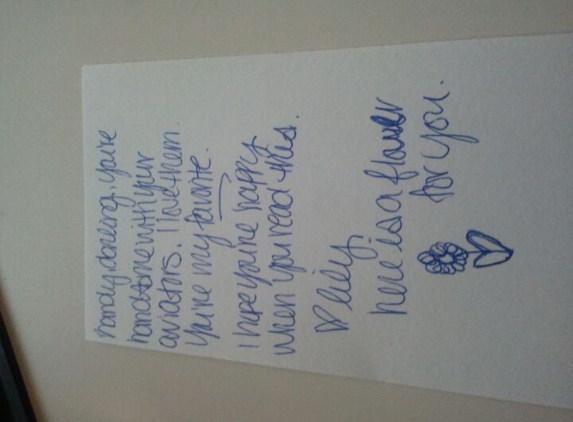 handsome with your
aviators. I love them.
You're my favorite.
I hope you're happy
when you read this.
♡ lily
here is a flower
for you.